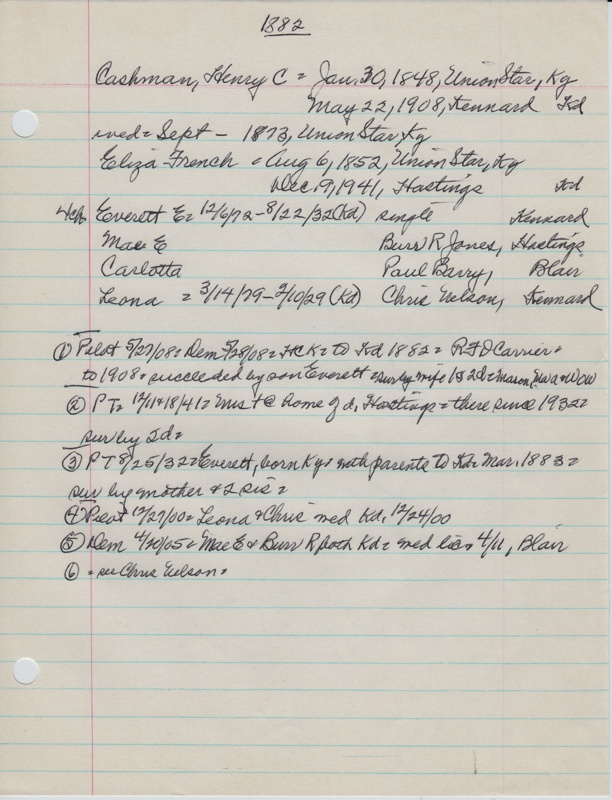 1882
Cashman, Henry C = Jan. 30, 1848, Union Star, Ky
May 22, 1908, Kennard Kd
wed = Sept - 1873, Union Star, Ky
Eliza French = Aug 6, 1852, Union Star, Ky
Dec. 9, 1941, Hastings Kd
4 ch Everett E = 12/6/72 - 8/22/32 (Kd) single Kennard
Mae E Burr R Jones, Hastings
Carlotta Paul Barry, Blair
Leona = 3/14/79 - 2/10/29 (Kd) Chris Nelson, Kennard
① Pilot 5/27/08 = Dem 5/28/08 = HCK = to Kd 1882 = RFD Carrier =
to 1908 = succeeded by son Everett = sur by wife 1s 2d = Mason, & WOW
② PT = 12/11 & 18/41 = Mrs + @ home of d, Hastings = there since 1932 =
sur by 2d =
③ PT 8/25/32 = Everett, born Ky & with parents to Kd = Mar. 1883 =
sur by mother & 2 sis =
④ Pilot 12/27/00 = Leona & Chris wed Kd, 12/24/00
⑤ Dem 4/20/05 = Mae E & Burr R both Kd = wed lic = 4/11, Blair
⑥ = see Chris Nelson =